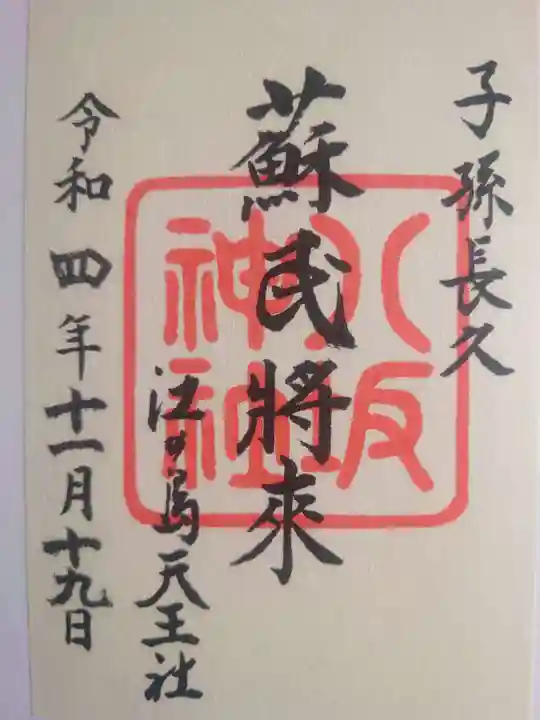 子孫長久
蘇民將來
江の島天王社
令和四年十一月十九日
八坂神社